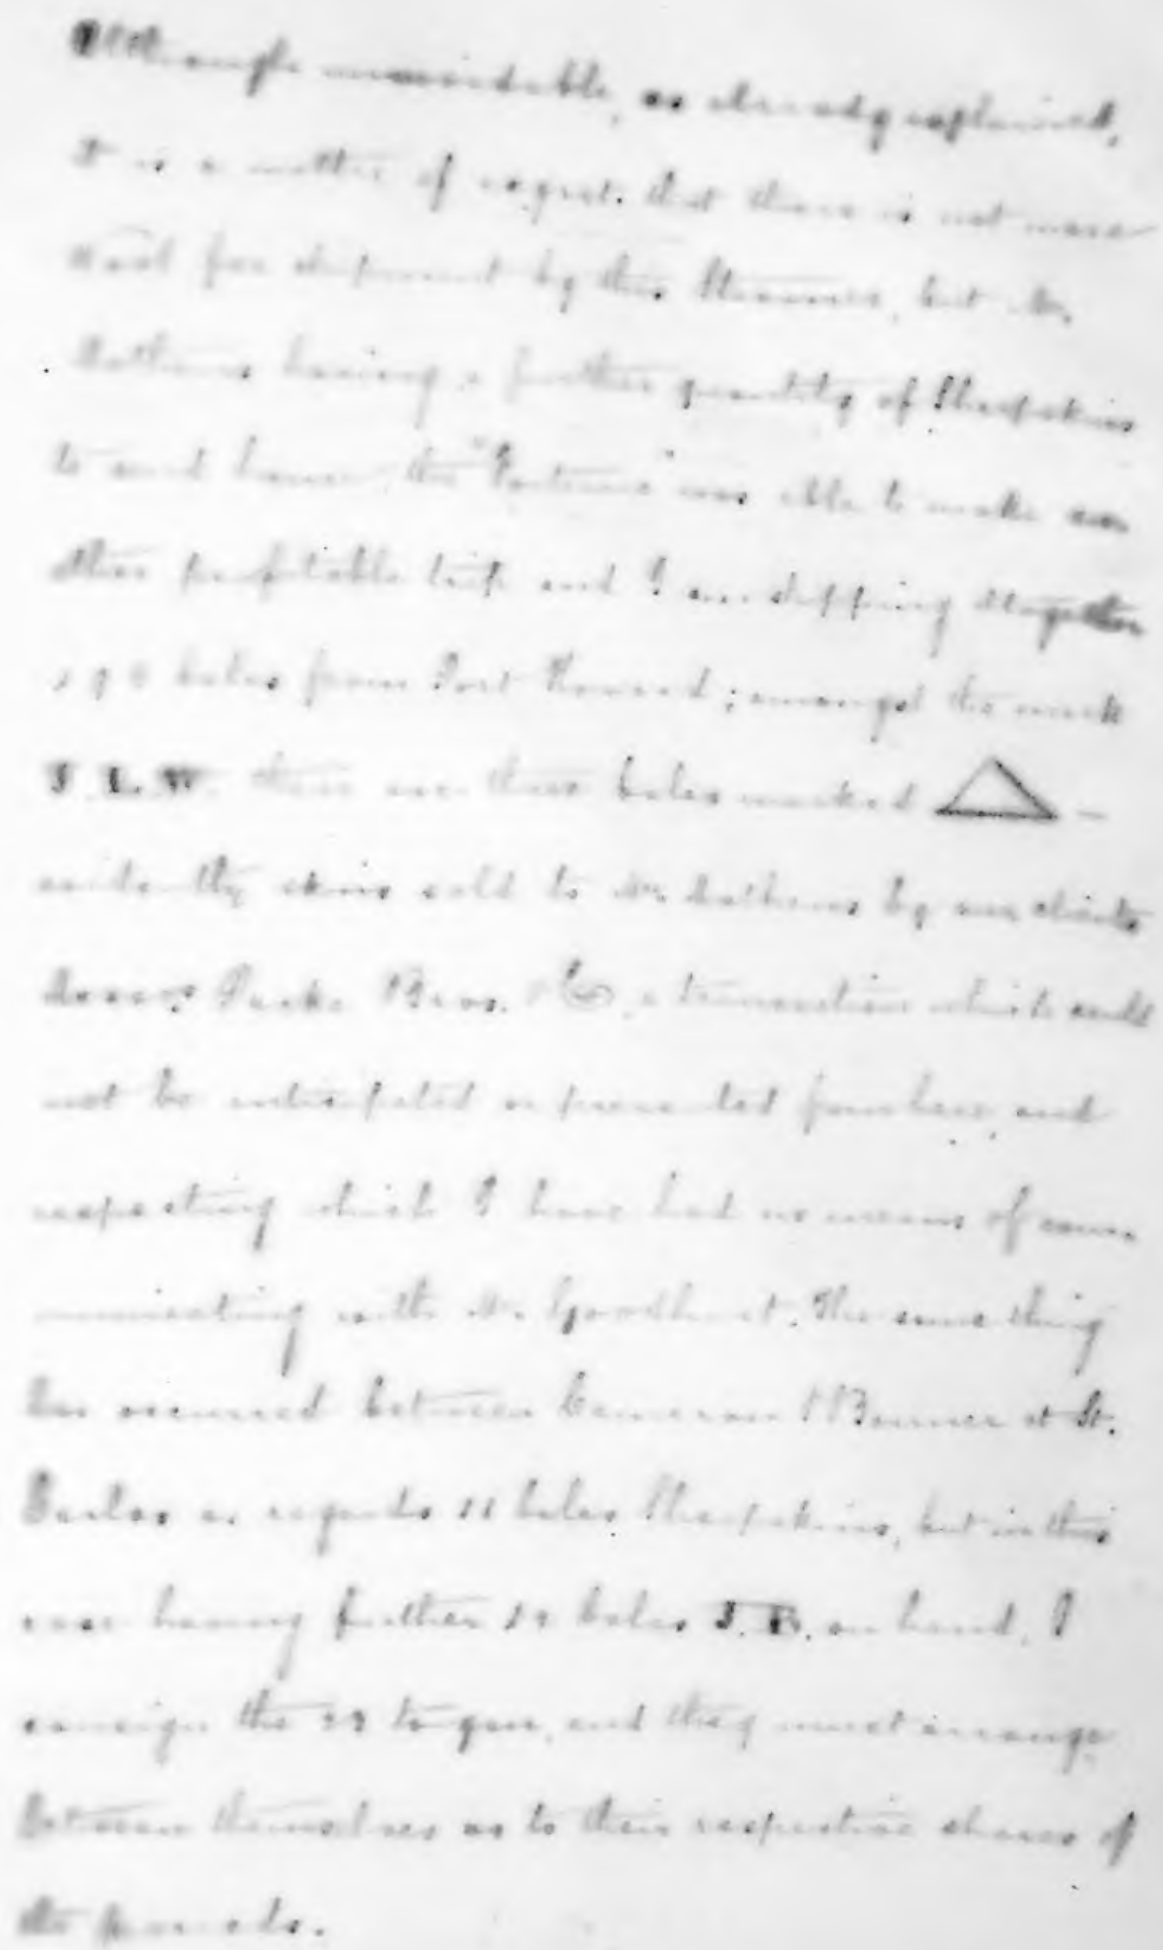 Although unavoidable, as already explained,
it is a matter of regret that there is not more
wool for shipment by this Steamer, but Mr.
Mathews having a further quantity of Sheepskins
to send home, the "Fortuna" was able to make an
other profitable trip and I am shipping altogether
bales from Port Howard; amongst the mark
J. L. W. there are three bales marked △ —
evidently skins sold to Mr. Mathews by our clients
Messrs Packe Bros. & Co, a transaction which could
not be anticipated or prevented from here, and
respecting which I have had no means of com
municating with Mr. Goodhart. The same thing
has occurred between Cameron & Bonner at St.
Carlos as regards 11 bales Sheepskins, but in this
case having further bales J. B. on hand, I
consign the to you, and they must arrange
between themselves as to their respective shares of
the proceeds.